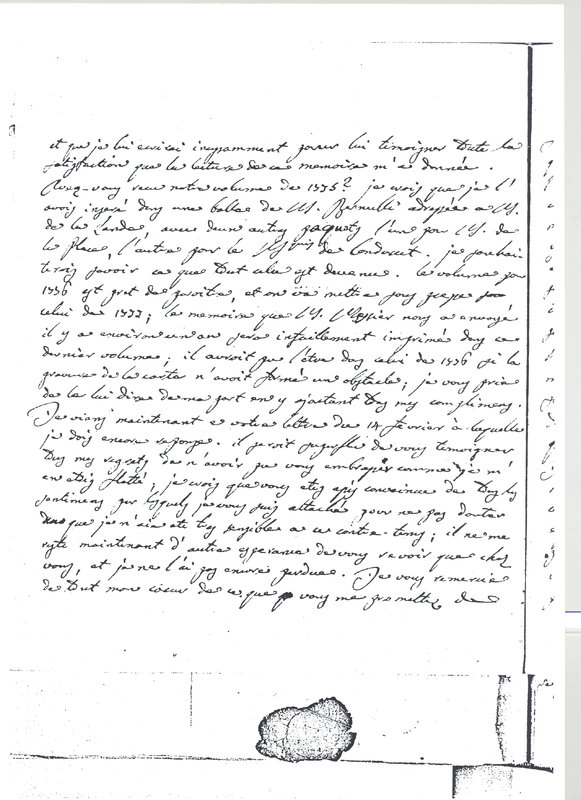 et que je lui ecrirai incessamment pour lui temoigner toute la
satisfaction que la lecture de ce memoire m'a donnée.
Avez-vous recu notre volume de 1775? je crois que je l'
avois inseré dans une balle de M. Bernulli adressée a M.
de la Lande, avec deux autres paquets l'un pour M. de
la Place, l'autre pour le Mquis de Condorcet. je souhai
terois savoir ce que tout cela est devenu. le volume pour
1776 est pret de paroitre, et on va mettre sous presse
celui de 1777; le memoire que M. Messier nous a envoyé
il y a environ un an sera infailliblement imprimé dans ce
dernier volume; il auroit pu l'être dans celui de 1776 si la
gravure de la carte n'avoit formé un obstacle; je vous prie
de le lui dire de ma part en y ajoutant tous mes complimens.
Je viens maintenant a votre lettre du 14 fevrier à laquelle
je dois encore reponse. il seroit superflu de vous temoigner
tous mes regrets de n'avoir pu vous embrasser comme je m'
en etois flatté; je crois que vous etes assez convaincu de tous les
sentimens par lesquels je vous suis attaché pour ne pas douter
que je n'aie eté très sensible a ce contre-tems; il ne me
reste maintenant d'autre esperance de vous revoir que chez
vous, et je ne l'ai pas encore perdue. Je vous remercie
de tout mon coeur de ce que vous me promettez